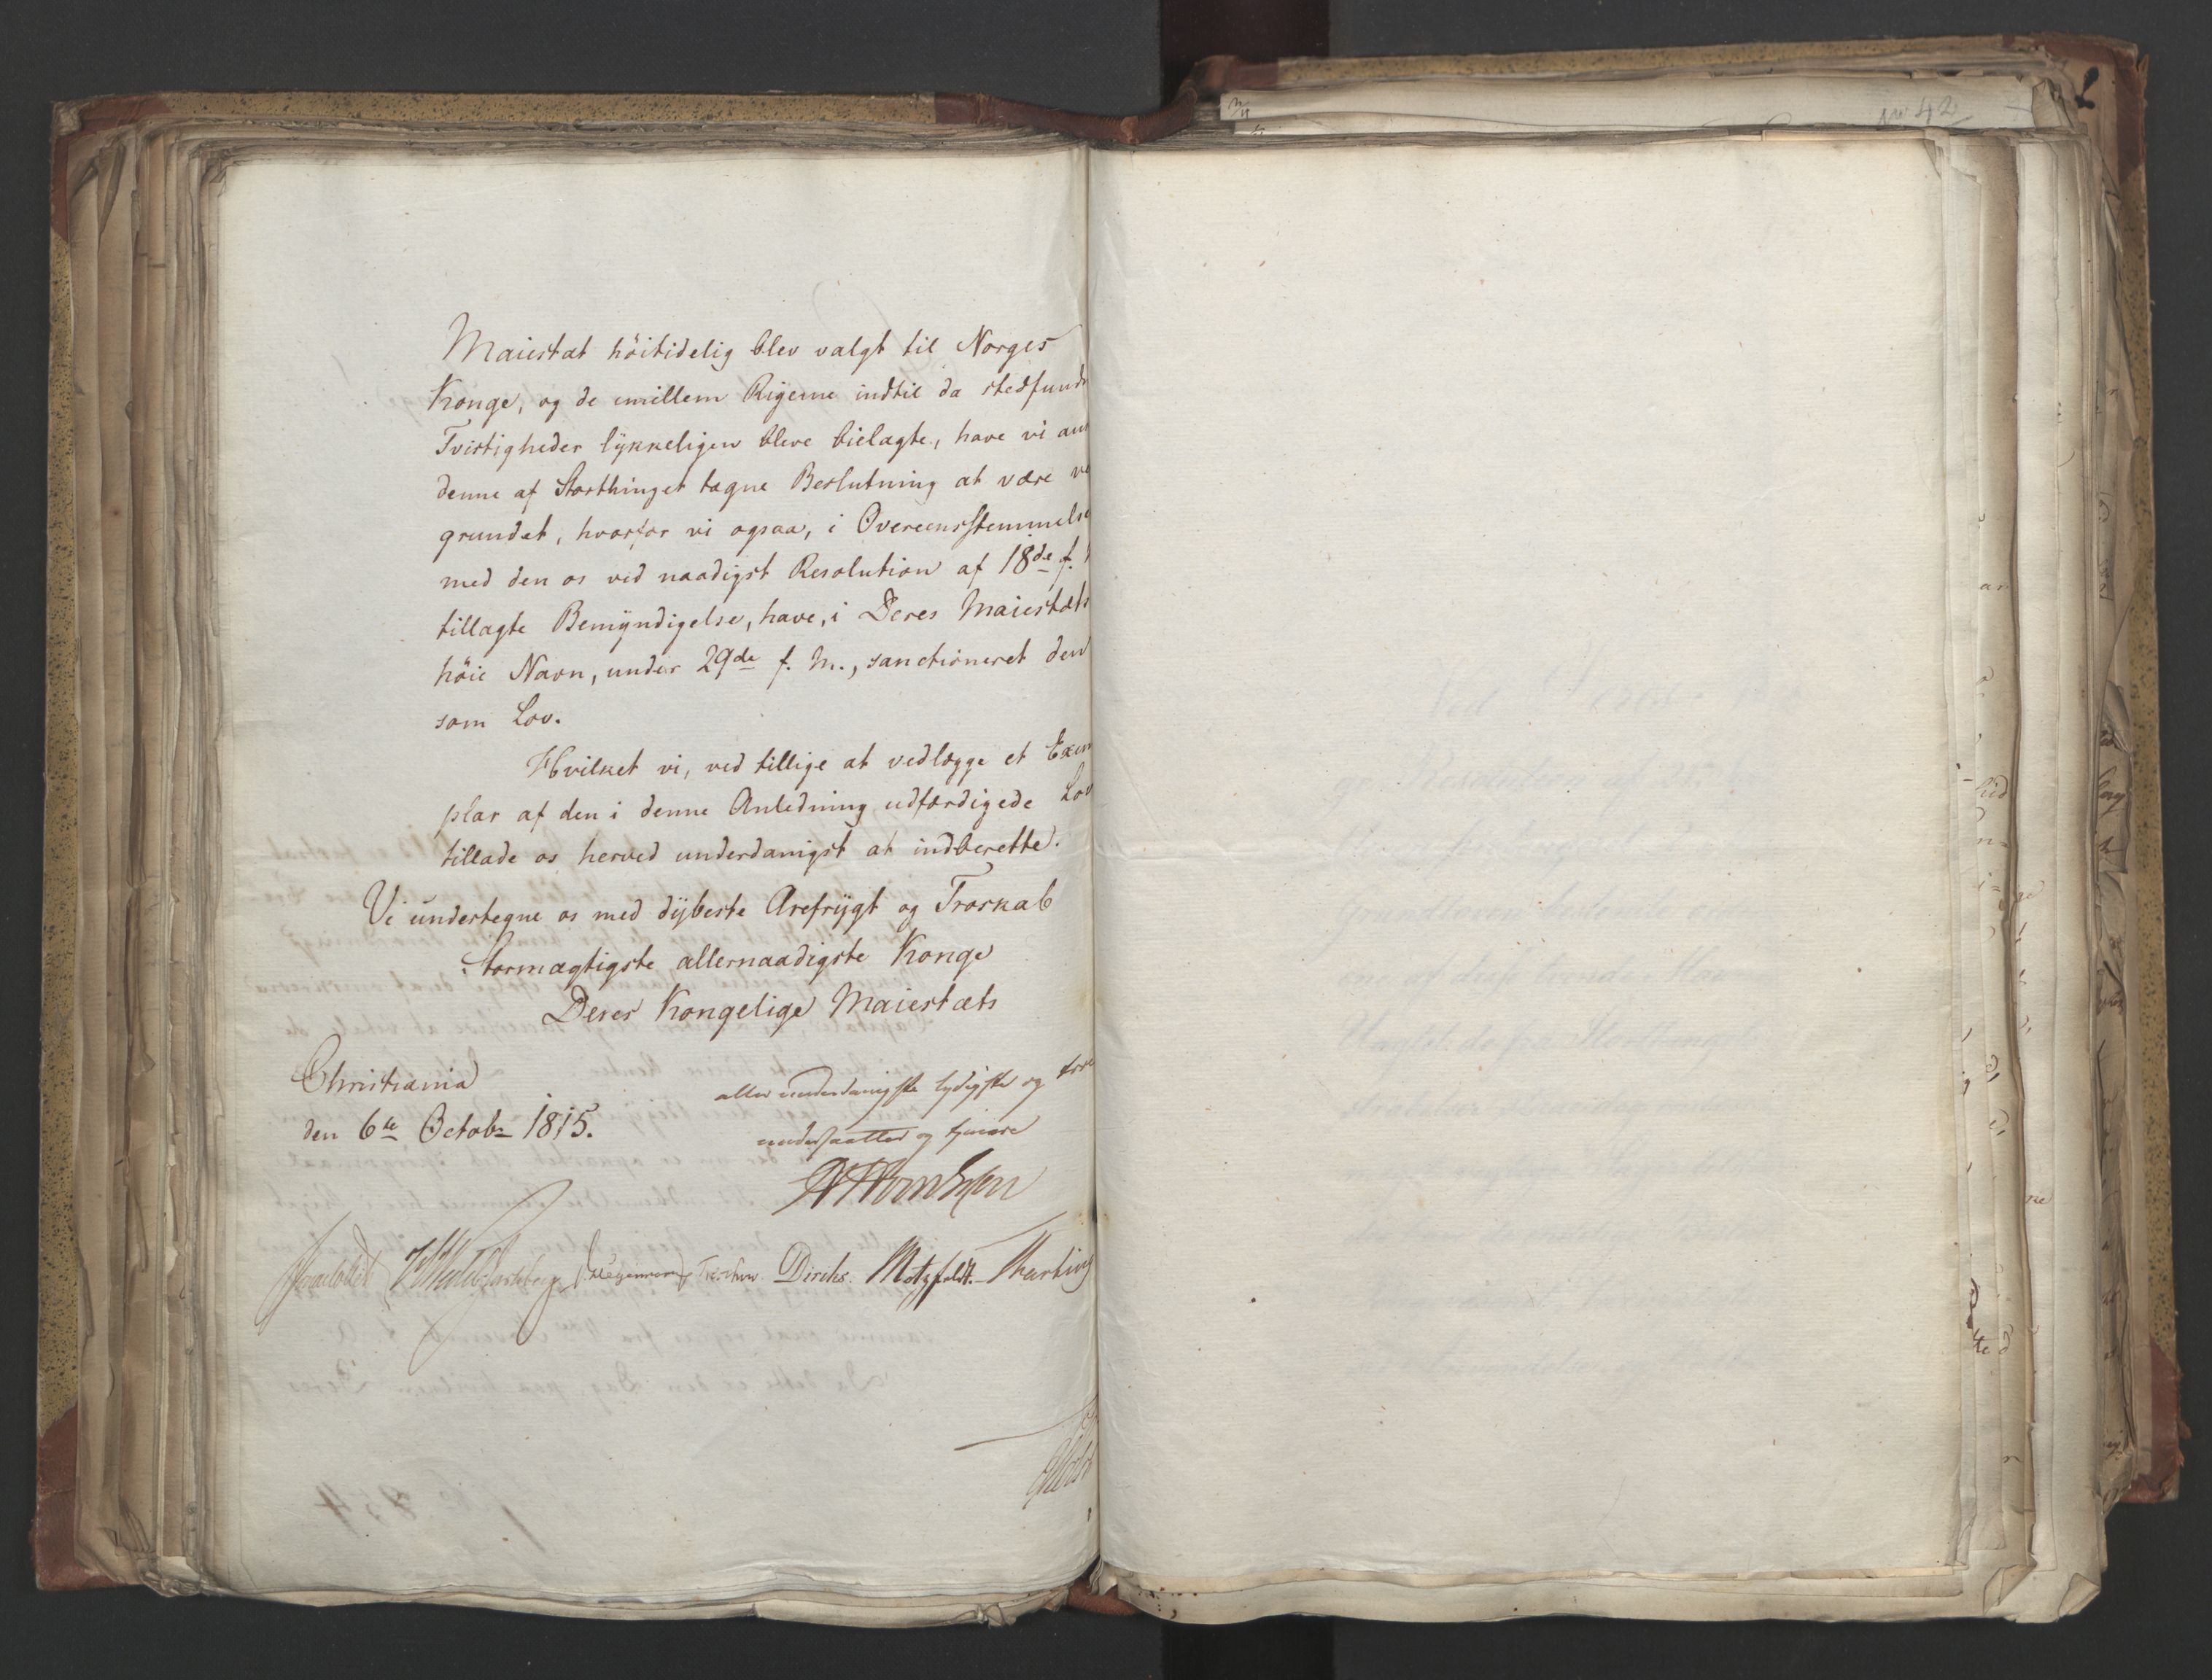 No 42
Maiestæt höitidelig blev valgt til Norges
Konge, og de imillem Rigerne indtil da stedfund
Tvistigheder lykkeligen bleve bielagte, have vi an
denne af Storthinget tagne Beslutning at være ve
grundet, hvorfor vi ogsaa, i Overeensstemmelse
med den os ved naadigst Resolution af 18de f.
tillagte Bemÿndigelse, have, i Deres Maiestæts
höie Navn, under 29de f. M., sanctioneret den
som Lov.
Hvilket vi, ved tillige at vedlægge et Exem
plar af den i denne Anledning udfærdigede Lov
tillade os herved underdanigst at indberette.
Vi undertegne os med dÿbeste Ærefrÿgt og Troskab
Stormægtigste allernaadigste Konge
Deres Kongelige Maiestæts
Christiania
den 6te Octobr 1815.
aller underdanigste lydigste og troe
undersaatter og tjenere
Diriks. Motzfeldt.